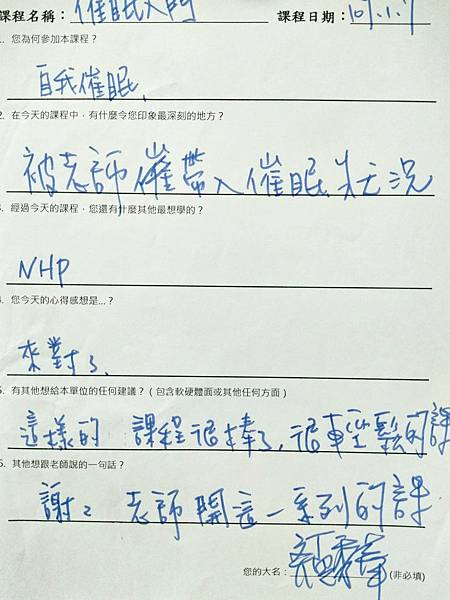 課程名稱：催眠入門 課程日期：107.1.7
1. 您為何參加本課程？
自我催眠.
2. 在今天的課程中，有什麼令您印象最深刻的地方？
被老師催帶入催眠狀況
3. 經過今天的課程，您還有什麼其他最想學的？
NHP
4. 您今天的心得感想是...？
來對了.
5. 有其他想給本單位的任何建議？（包含軟硬體面或其他任何方面）
這樣的 課程很棒了，很輕鬆的課
6. 其他想跟老師說的一句話？
謝々 老師開這一系列的課
您的大名： (非必填)